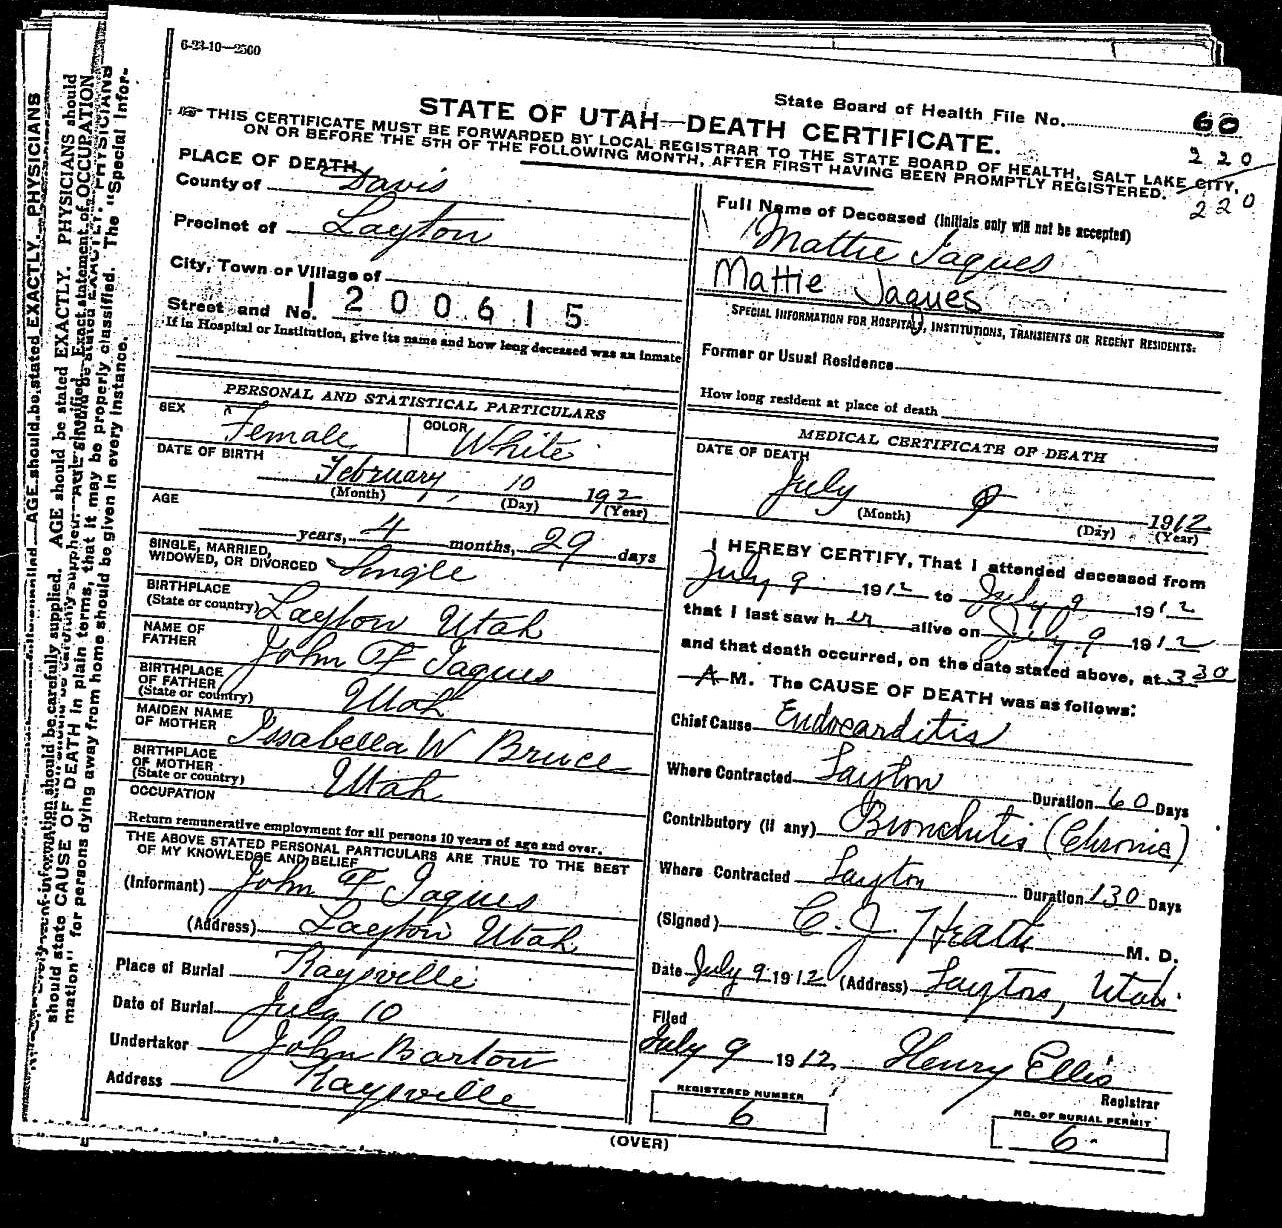 6-23-10—2500
State Board of Health File No. 60
STATE OF UTAH—DEATH CERTIFICATE.
220
THIS CERTIFICATE MUST BE FORWARDED BY LOCAL REGISTRAR TO THE STATE BOARD OF HEALTH, SALT LAKE CITY,
ON OR BEFORE THE 5TH OF THE FOLLOWING MONTH, AFTER FIRST HAVING BEEN PROMPTLY REGISTERED.
220
PLACE OF DEATH
County of Davis
Precinct of Layton
City, Town or Village of
Street and No. 1200615
If in Hospital or Institution, give its name and how long deceased was an inmate
PERSONAL AND STATISTICAL PARTICULARS
SEX Female COLOR White
DATE OF BIRTH
February 10 192
(Month) (Day) (Year)
AGE
years, 4 months, 29 days
SINGLE, MARRIED,
WIDOWED, OR DIVORCED Single
BIRTHPLACE
(State or country) Layton Utah
NAME OF
FATHER John F Jaques
BIRTHPLACE
OF FATHER
(State or country) Utah
MAIDEN NAME
OF MOTHER Issabella W Bruce
BIRTHPLACE
OF MOTHER
(State or country) Utah
OCCUPATION
Return remunerative employment for all persons 10 years of age and over.
THE ABOVE STATED PERSONAL PARTICULARS ARE TRUE TO THE BEST
OF MY KNOWLEDGE AND BELIEF
(Informant) John F Jaques
(Address) Layton Utah
Place of Burial Kaysville
Date of Burial July 10
Undertaker John Barton
Address Kaysville
Full Name of Deceased (Initials only will not be accepted)
Mattie Jaques
Mattie Jaques
SPECIAL INFORMATION FOR HOSPITALS, INSTITUTIONS, TRANSIENTS OR RECENT RESIDENTS:
Former or Usual Residence
How long resident at place of death
MEDICAL CERTIFICATE OF DEATH
DATE OF DEATH
July 9 1912
(Month) (Day) (Year)
I HEREBY CERTIFY, That I attended deceased from
July 9 1912 to July 9 1912
that I last saw her alive on July 9 1912
and that death occurred, on the date stated above, at 330
A M. The CAUSE OF DEATH was as follows:
Chief Cause Endocarditis
Where Contracted Layton Duration 60 Days
Contributory (if any) Bronchitis (Chronic)
Where Contracted Layton Duration 130 Days
(Signed) C. J. Heath M. D.
Date July 9 1912 (Address) Layton, Utah
Filed
July 9 1912 Henry Ellis
Registrar
REGISTERED NUMBER
6
NO. OF BURIAL PERMIT
6
(OVER)
AGE should be stated EXACTLY. PHYSICIANS
should state CAUSE OF DEATH in plain terms, that it may be properly classified. The "Special Infor-
mation" for persons dying away from home should be given in every instance.